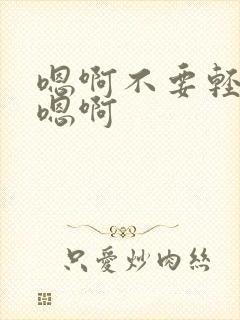 嗯啊不要輕
嗯啊
只愛炒肉絲